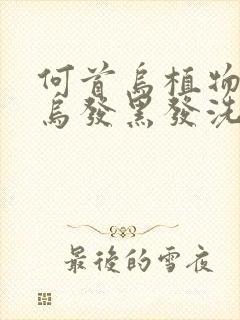 何首烏植物
烏發黑發洗
最後的雪夜